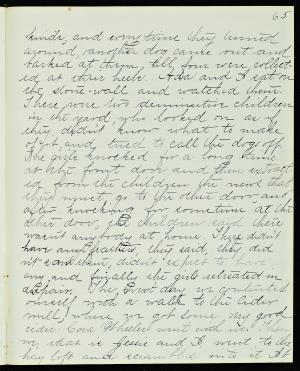 65
kinds, and every time they turned
around, another dog came out and
barked at them, till four were collect-
ed at their heels. Ada and I sat on
the stone wall and watched them.
There were two diminutive children
in the yard, who looked on as if
they didn't know what to make
of it, and tried to call the dog off.
The girls knocked for a long time
at the front door and then extract-
ed from the children the news that
they must go to the other door, and
after knocking for sometime at the
other door, the children said there
wasn't anybody at home. They didn't
have any they said, they did
n't want them, didn't expect to have
any, and finally the girls retreated in
despair. The next day we contented
ourselves with a walk to the cider
mill, where we got some very good
cider. Cora Wheeler went with us. Then
Jessie and I went to the
hay loft and scrambled into it. At